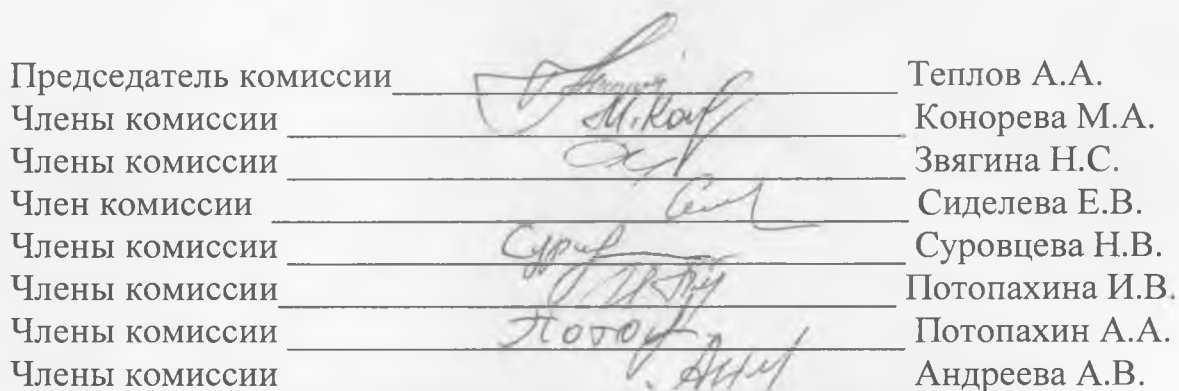 Председатель комиссии Теплов А.А.
Члены комиссии М.Кон Конорева М.А.
Члены комиссии Звягина Н.С.
Член комиссии Сиделева Е.В.
Члены комиссии Суровцева Н.В.
Члены комиссии Потопахина И.В.
Члены комиссии Потопахин А.А.
Члены комиссии Андреева А.В.